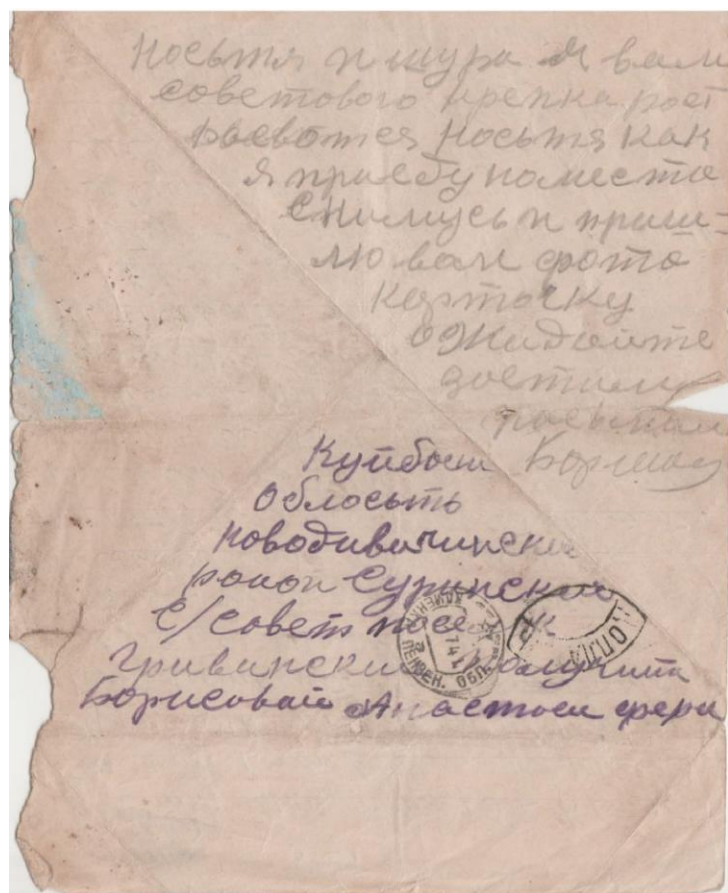 Носьтя и шура я вам
советового крепка рост
Носьтя как
я приеду наместа
Снимусь и приш-
лю вам фото
карточку
ожидайте
Куйбыш
Облосьть
Новодивичински
район Суринский
С/совет поселок
Гривински Получить
Борисовай Анастаси
КАМЕНКА ПЕНЗЕН. ОБЛ.
ДОПЛ